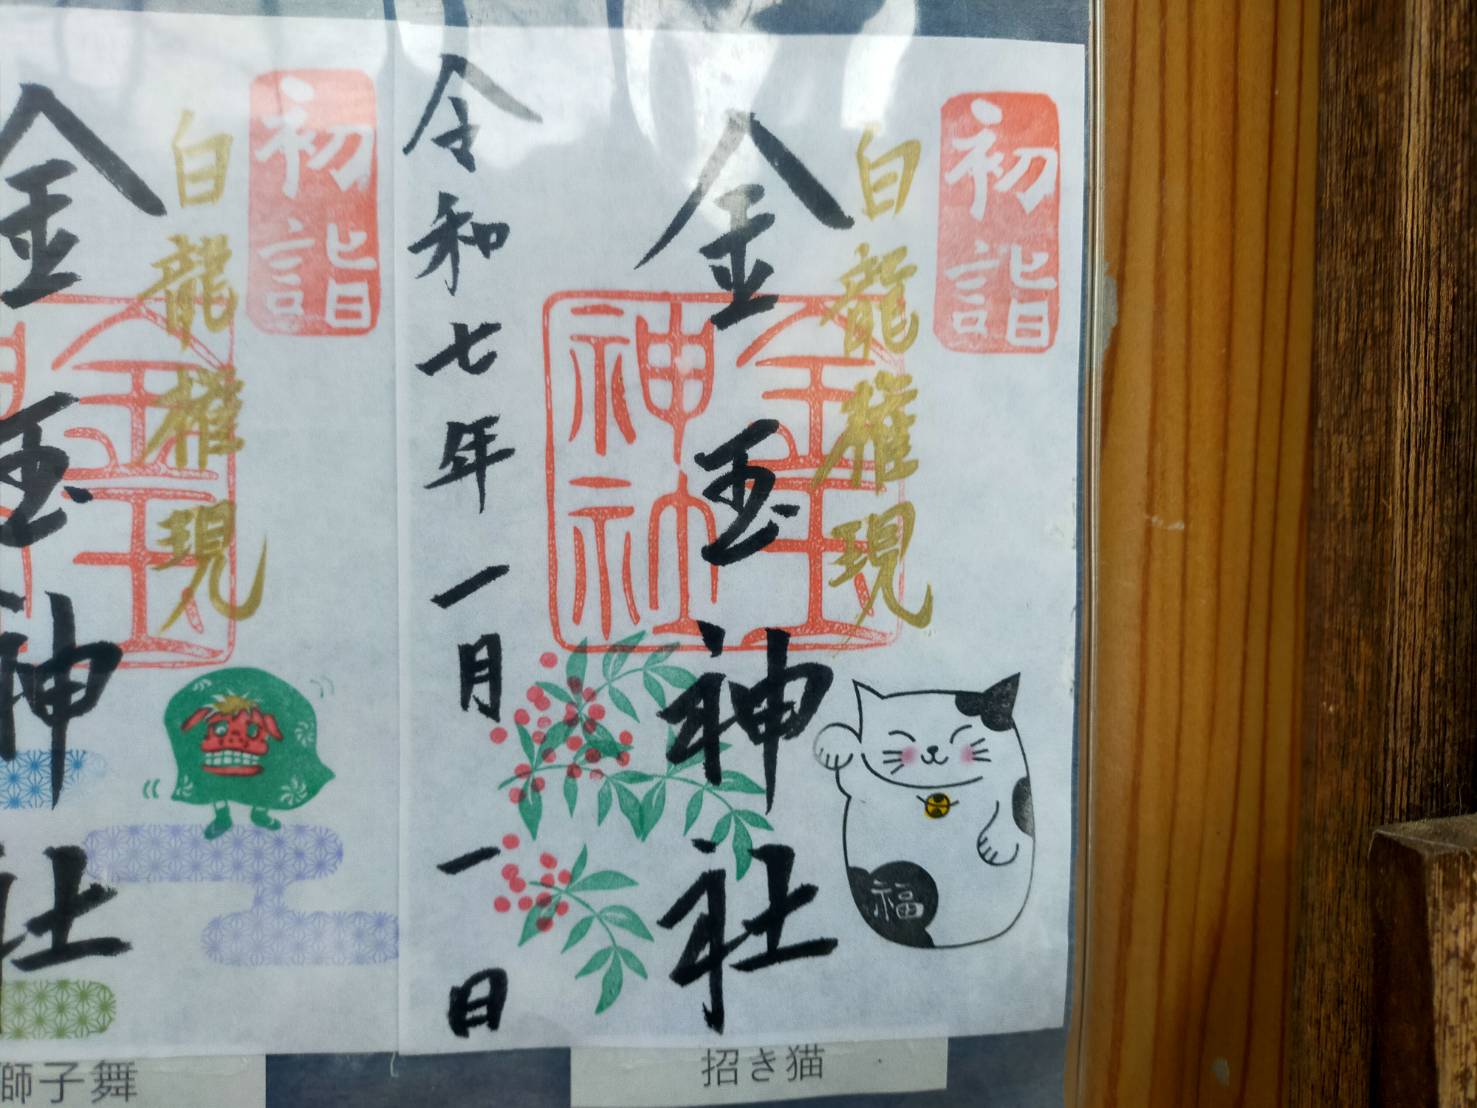 初詣
白龍権現
金玉神社
金玉神社
令和七年一月一日
福
招き猫
初詣
白龍権現
金玉神社
獅子舞